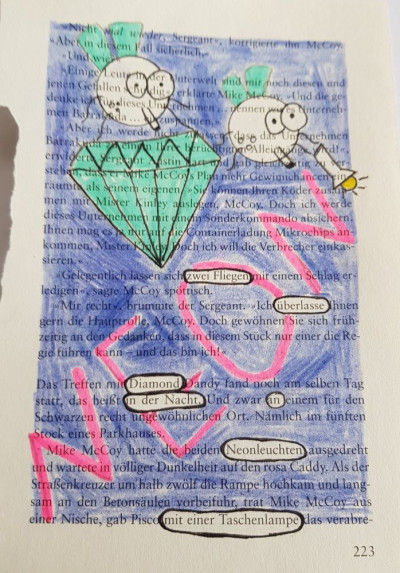 »Nicht mal wieder, Sergeant«, korrigierte ihn McCoy.
»Aber in diesem Fall sicherlich.«
»Und wie
»Einige der Unterwelt sind mir noch diesen und
jenen Gefallen schuldig«, erklärte Mike McCoy. »Und die ge-
denke ich für dieses Unternehmen
men
»Aber ich werde nicht dass das Unternehmen
Barra
erwiderte Sergeant
McCoy's Plan mehr Gewinnchancen ein-
räumte als seinem eigenen. »Sie können Ihren Köder
men mit Mister Kinley auslegen, McCoy. Doch ich werde
dieses Unternehmen mit einem Sonderkommando absichern.
Ihnen mag es nur auf die Containerladung Mikrochips an-
kommen, Mister Kinley. Doch ich will die Verbrecher einkas-
sieren.«
»Gelegentlich lassen sich zwei Fliegen mit einem Schlag er-
ledigen«, sagte McCoy spöttisch.
»Mir recht«, brummte der Sergeant. »Ich überlasse Ihnen
gern die Hauptrolle, McCoy. Doch gewöhnen Sie sich früh-
zeitig an den Gedanken, dass in diesem Stück nur einer die Re-
gie führen kann – und das bin ich!«
Das Treffen mit Diamond Dandy fand noch am selben Tag
statt, das heißt in der Nacht. Und zwar an einem für den
Schwarzen recht ungewöhnlichen Ort. Nämlich im fünften
Stock eines Parkhauses.
Mike McCoy hatte die beiden Neonleuchten ausgedreht
und wartete in völliger Dunkelheit auf den rosa Caddy. Als der
Straßenkreuzer um halb zwölf die Rampe hochkam und lang-
sam an den Betonsäulen vorbeifuhr, trat Mike McCoy aus
einer Nische, gab Pisco mit einer Taschenlampe das verabre-
223
NEON